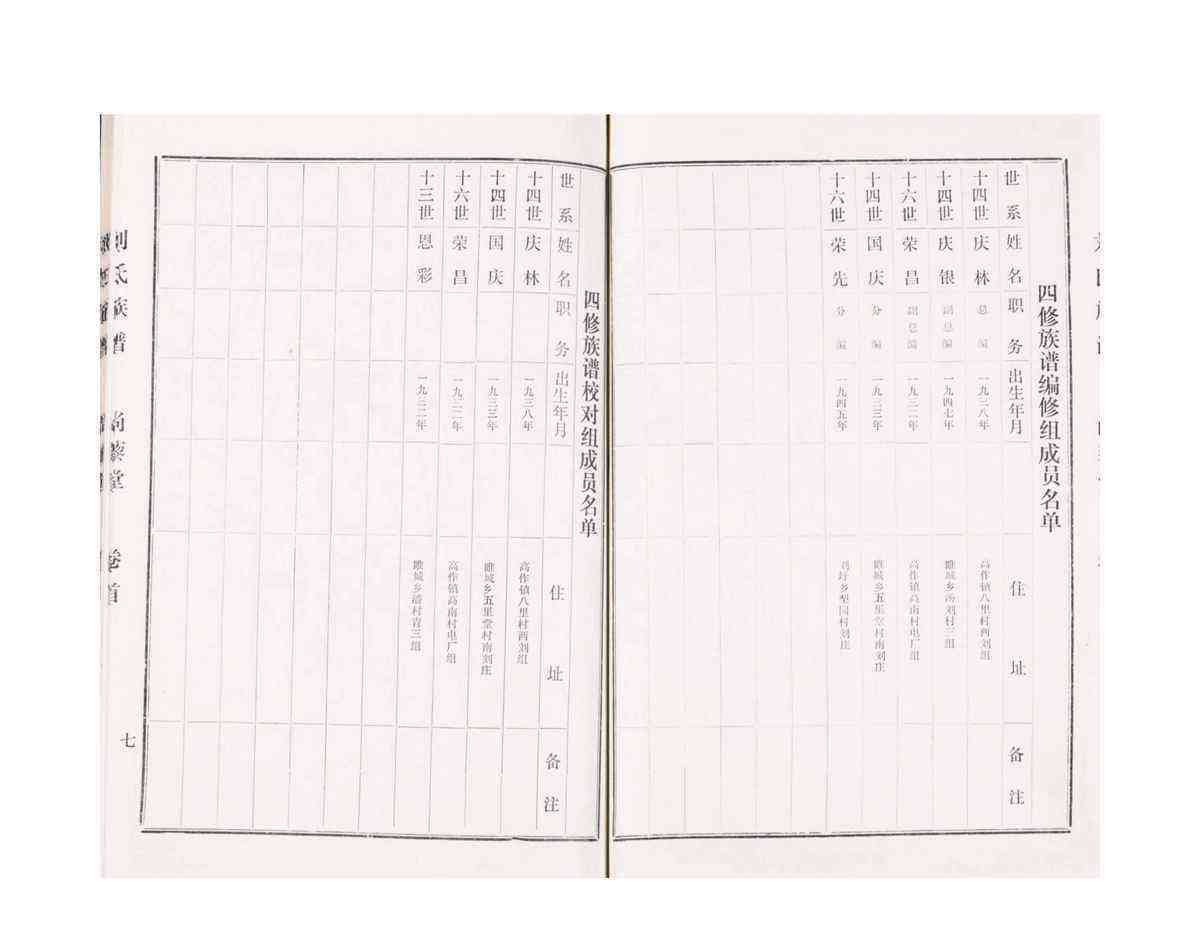 四修族谱编修组成员名单
世系 姓名 职务 出生年月 住址 备注
十四世 庆林 总编 一九三八年 高作镇八里村西刘组
十四世 庆银 副总编 一九四七年 睢城乡汤刘村三组
十六世 荣昌 副总编 一九三二年 高作镇高南村电厂组
十四世 国庆 分编 一九三三年 睢城乡五里堂村南刘庄
十六世 荣先 分编 一九四五年 刘圩乡 园村刘庄
四修族谱校对组成员名单
世系 姓名 职务 出生年月 住址 备注
十四世 庆林 一九三八年 高作镇八里村西刘组
十四世 国庆 一九三三年 睢城乡五里堂村南刘庄
十六世 荣昌 一九三二年 高作镇高南村电厂组
十三世 恩彩 一九三二年 睢城乡 村青三组
刘氏族谱 尚藜堂 卷首
七